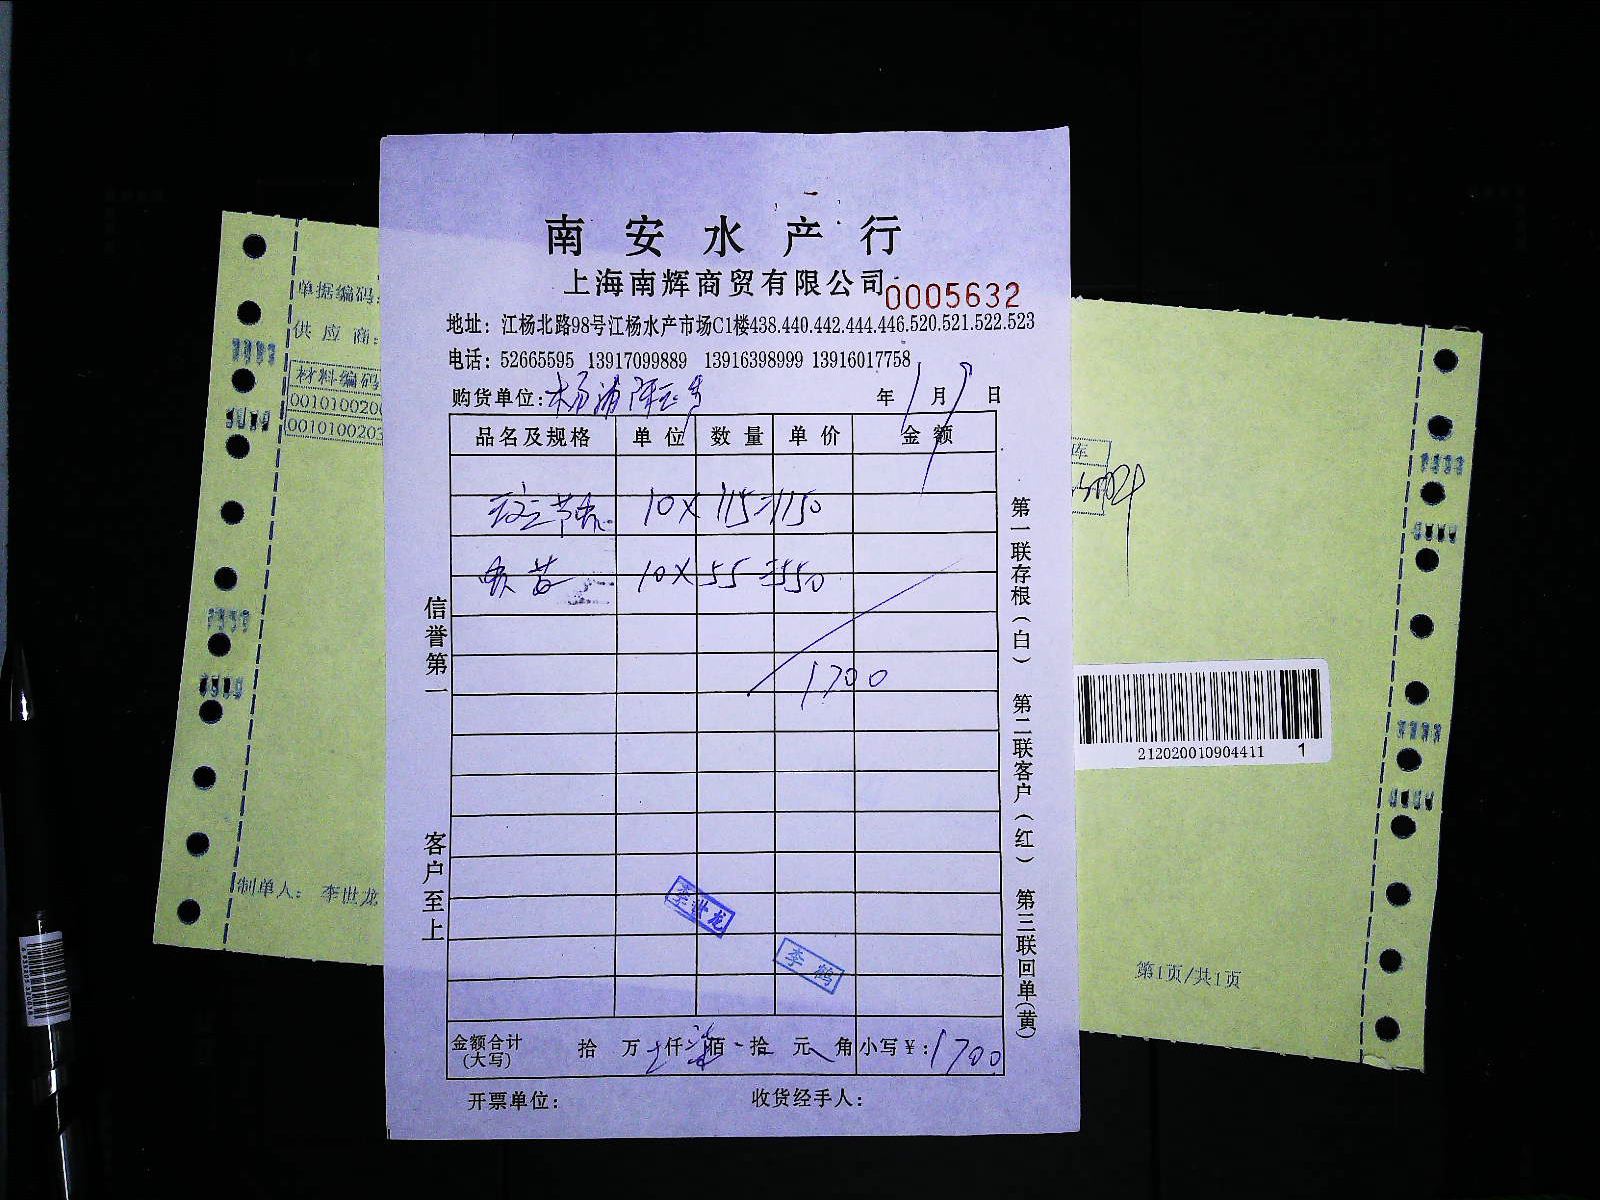 南安水产行
上海南辉商贸有限公司
0005632
地址：江杨北路98号江杨水产市场C1楼438.440.442.444.446.520.521.522.523
电话：52665595 13917099889 13916398999 13916017758
购货单位：杨浦 年 1 月 9 日
品名及规格 单位 数量 单价 金额
10 X 115=1150
10 X 55=550
1700
信誉第一
客户至上
第一联存根（白） 第二联客户（红） 第三联回单（黄）
李世龙
李鹤
金额合计 拾 万 仟 柒 佰 拾 元 角 小写￥：1700
(大写)
开票单位： 收货经手人：
单据编码：
供应商：
材料编码
001010020
001010203
制单人： 李世龙
库
212020010904411 1
第1页/共1页